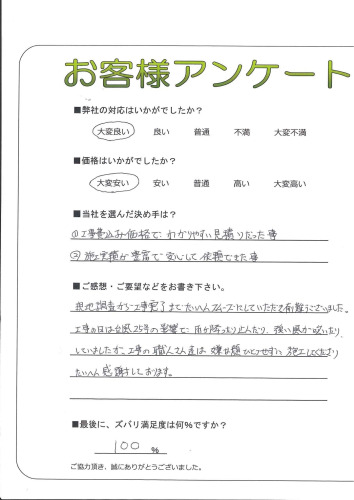 お客様アンケート
■弊社の対応はいかがでしたか？
大変良い 良い 普通 不満 大変不満
■価格はいかがでしたか？
大変安い 安い 普通 高い 大変高い
■当社を選んだ決め手は？
①工事費込み価格で、わかりやすい見積りだった事
②施工実績が豊富で安心して依頼できた事
■ご感想・ご要望などをお書き下さい。
現地調査から工事完了までたいへんスムーズにしていただき有難うございました。
工事の日は台風25号の影響で、雨が降ったり止んだり、強い風が吹いたり
していましたが、工事の職人さん達は、嫌な顔ひとつせずに施工してくださり
たいへん感謝しております。
■最後に、ズバリ満足度は何％ですか？
100 ％
ご協力頂き、誠にありがとうございました。